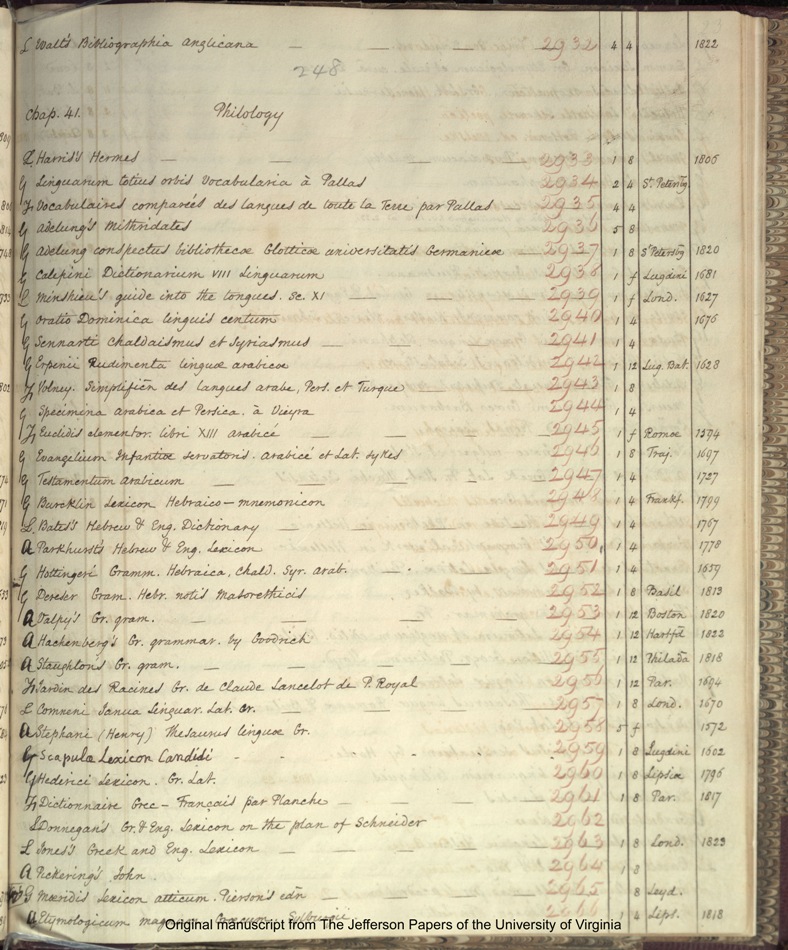 L Watt's Bibliographia Anglicana — — — 2932 4 4 1822
248
Chap. 41. Philology
L. Harris's Hermes — — — — 2933 1 8 1806
G Linguarum totius orbis Vocabularia à Pallas 2934 2 4 St. Petersbg
Fr Vocabulaires comparés des langues de toute la Terre par Pallas 2935 4 4
G Adelung's Mithridates 2936 5 8
G Adelung conspectus bibliothecæ Glotticæ universitatis Germanicæ 2937 1 8 St Petersbg 1820
G Calepini Dictionarium VIII Linguarum 2938 1 f Lugdini 1681
L Minshieu's guide into the tongues. Sc. XI 2939 1 f Lond. 1627
G Oratio Dominica linguis centum 2940 1 4 1676
G Sennarti Chaldaismus et Syriasmus — 2941 1 4
G Erpinii Rudimenta linguæ arabicæ 2942 1 12 Lug. Bat. 1628
Fr Volney. Simplifiён des langues arabe, Pers. et Turque 2943 1 8
G Specimina arabica et Persica. à Vieyra 2944 1 4
Fr Euclidis elementor. libri XIII arabicé — — 2945 1 f Romoe 1594
G Evangelium Infantiæ servatoris. arabicé et Lat. Sykes 2946 1 8 Traj. 1697
G Testamentum arabicum — — 2947 1 4 1727
G Burcklin Lexicon Hebraico-mnemonicon 2948 1 4 Frankf. 1799
L. Bates's Hebrew & Eng. Dictionary — — 2949 1 4 1767
A Parkhurst's Hebrew & Eng. Lexicon 2950 1 4 1778
G Hottingeri Gramm. Hebraica, Chald. Syr. arab. 2951 1 4 1659
G Pereker Gram. Hebr. notis Masorethicis 2952 1 8 Basil 1813
A Valpy's Gr. gram. — — 2953 1 12 Boston 1820
A Hachenberg's Gr. grammar. by Goodrich 2954 1 12 Hartfd 1822
A Staughton's Gr. gram. — — 2955 1 12 Philada 1818
Fr Jardin des Racines Gr. de Claude Lancelot de P. Royal 2956 1 12 Par. 1694
L Comneni Janua Linguar. Lat. Gr. 2957 1 8 Lond. 1670
A Stephani (Henry) Thesaurus linguæ Gr. 2958 5 f 1572
G Scapulæ Lexicon Candidi 2959 1 8 Lugdini 1602
G Hederici Lexicon. Gr. Lat. 2960 1 8 Lipsiæ 1796
Fr Dictionnaire Grec-Français par Planche — 2961 1 8 Par. 1817
L Donnegan's Gr. & Eng. Lexicon on the plan of Schneider 2962
L Jones's Greek and Eng. Lexicon — 2963 1 8 Lond. 1823
A Pickering's John. 2964 1 8
G Mœridis Lexicon atticum. Pierson's edn 2965 8 Leyd.
A Etymologicum magnum Græcum. Sylburgii 2966 1 4 Lips. 1818
Original manuscript from The Jefferson Papers of the University of Virginia